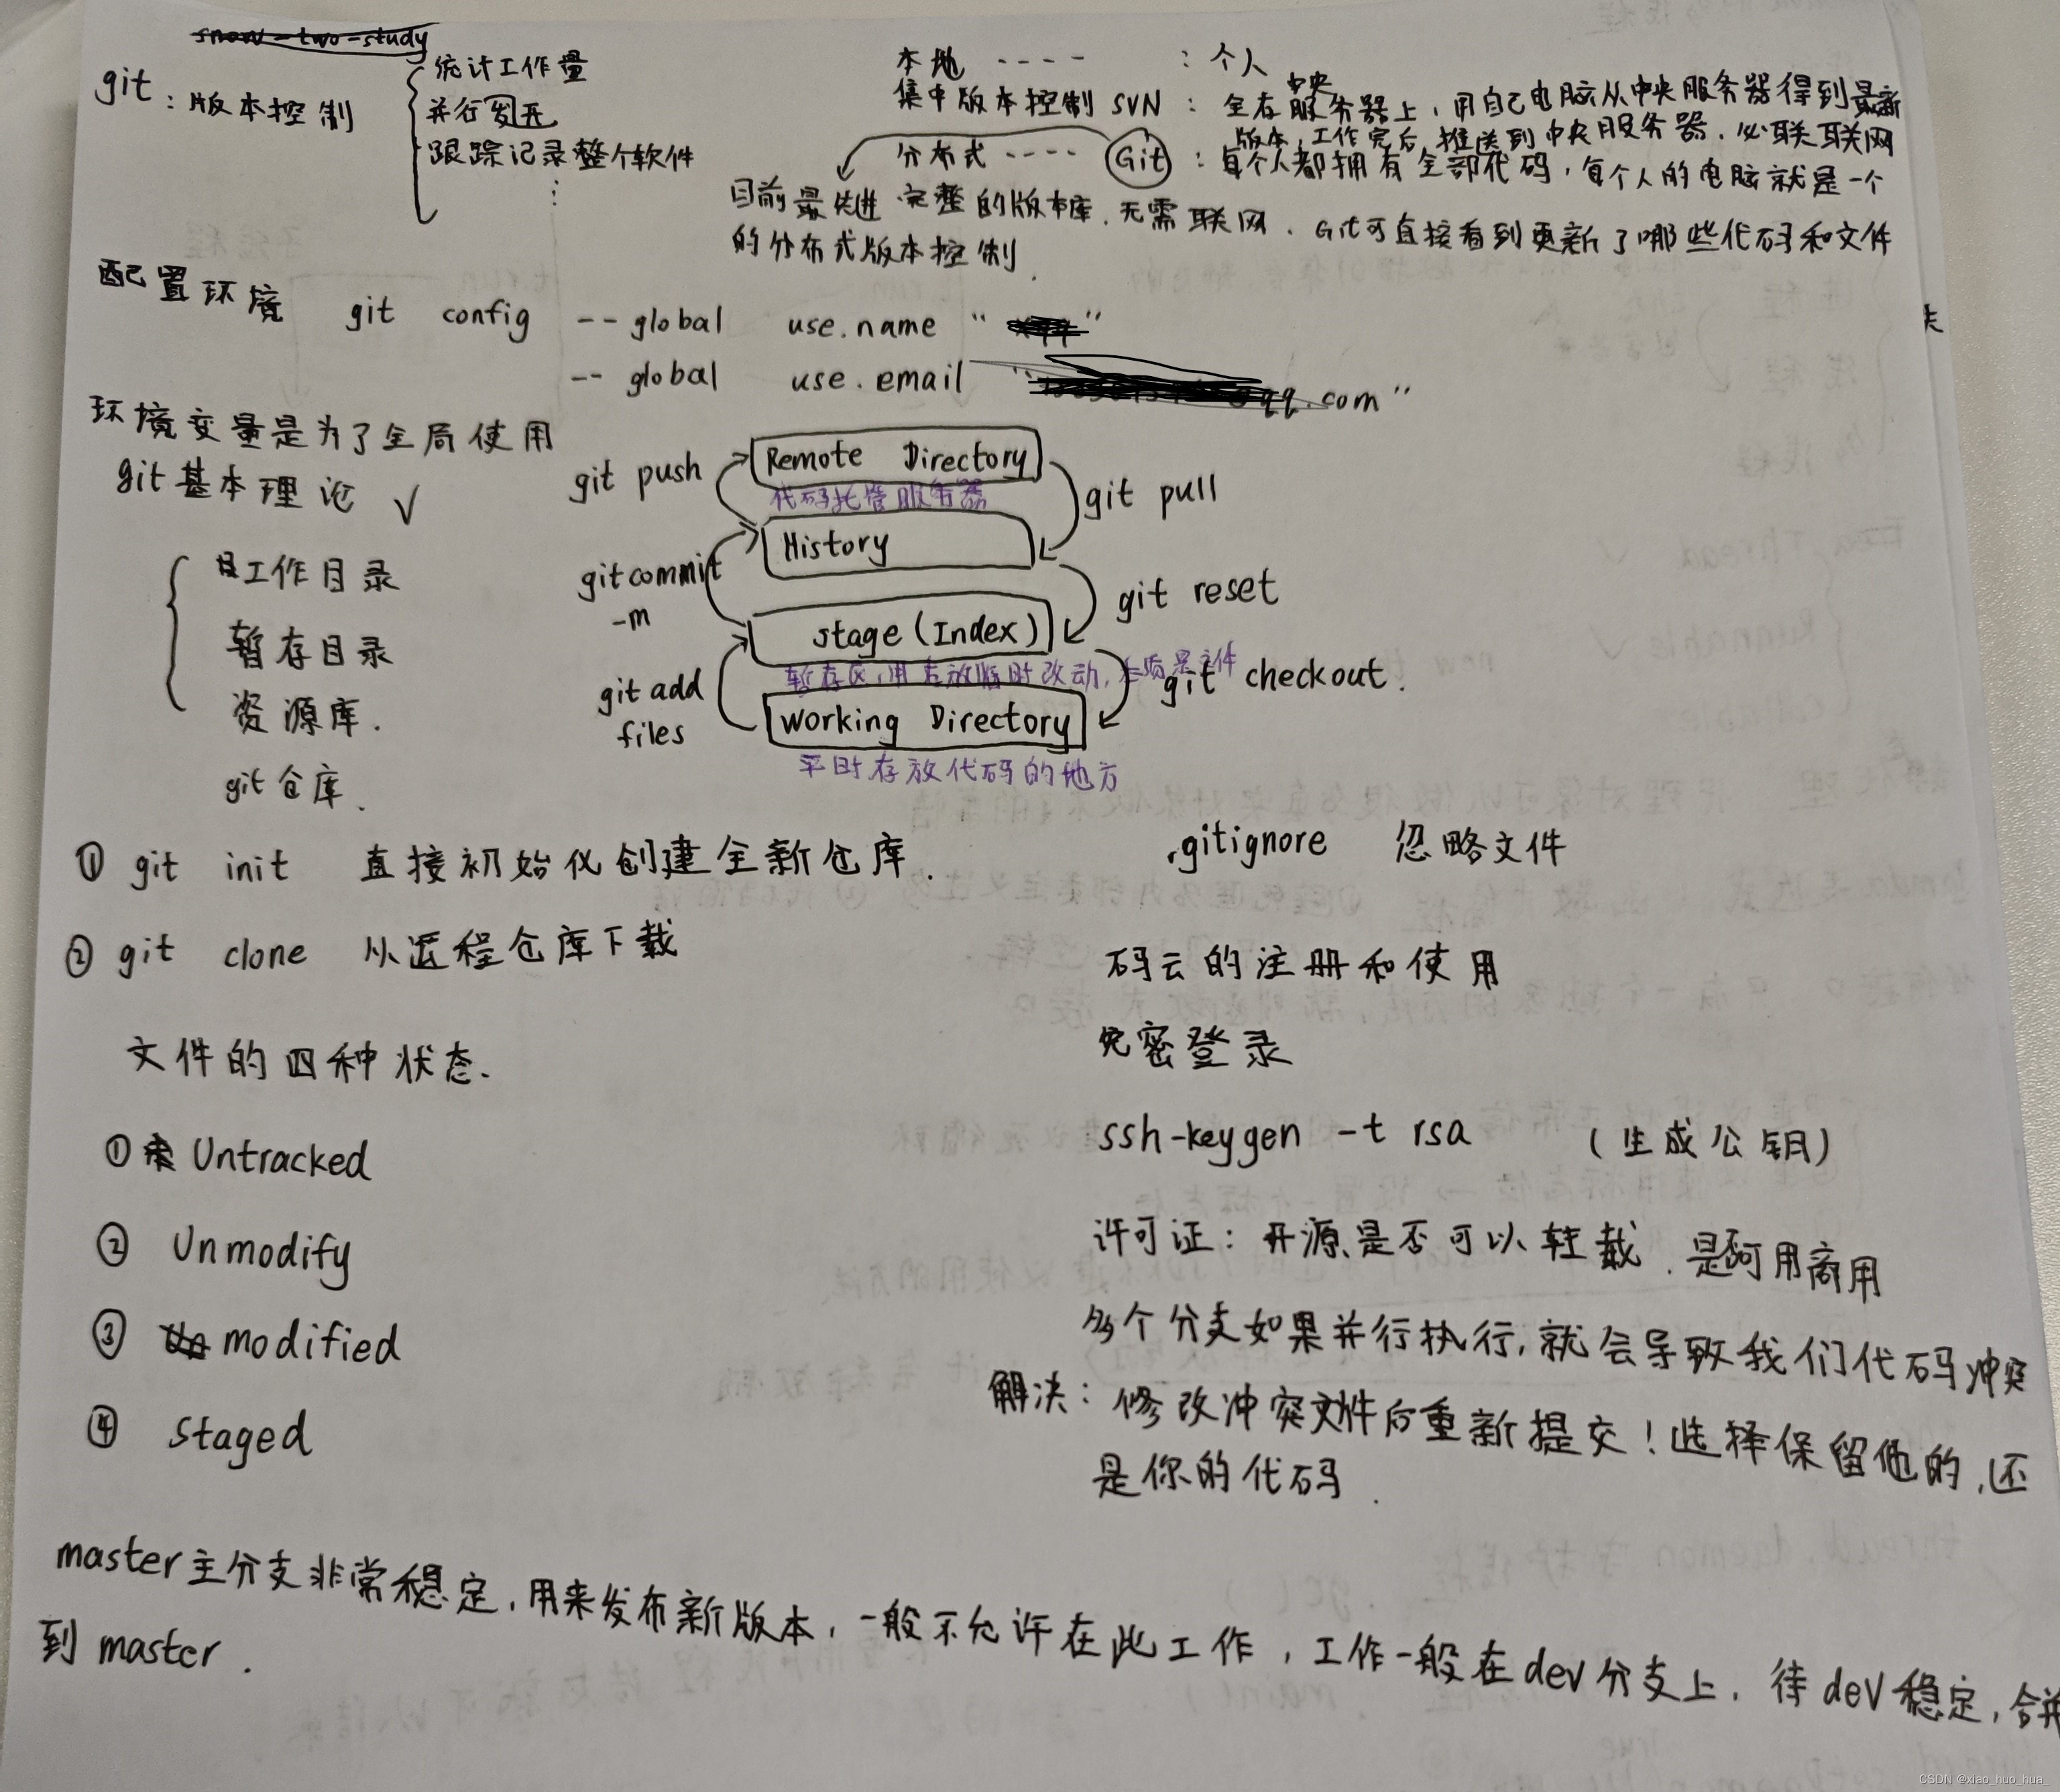 git：版本控制
统计工作量
并行开发
跟踪记录整个软件
本地 ---- ：个人
集中版本控制 SVN ：全存中央服务器上，用自己电脑从中央服务器得到最新
版本，工作完后，推送到中央服务器，必联联网
分布式 ---- Git ：每个人都拥有全部代码，每个人的电脑就是一个
完整的版本库，无需联网，Git可直接看到更新了哪些代码和文件
目前最先进
的分布式版本控制
配置环境 git config --global use.name " "
-- global use.email " qq.com"
环境变量是为了全局使用
git基本理论 √
工作目录
暂存目录
资源库.
git仓库.
Remote Directory
代码托管服务器
git push
git pull
History
git commit -m
git reset
stage (Index)
暂存区,用于存放临时改动,本质是文件
git add files
git checkout.
Working Directory
平时存放代码的地方
① git init 直接初始化创建全新仓库.
② git clone 从远程仓库下载
文件的四种状态.
① Untracked
② Unmodify
③ modified
④ Staged
.gitignore 忽略文件
码云的注册和使用
免密登录
ssh-keygen -t rsa (生成公钥)
许可证：开源是否可以转载. 是否可用商用
多个分支如果并行执行,就会导致我们代码冲突
解决：修改冲突文件后重新提交！选择保留他的,还
是你的代码.
master主分支非常稳定,用来发布新版本,一般不允许在此工作,工作一般在dev分支上,待dev稳定,合并
到 master.
CSDN @xiao_huo_hua